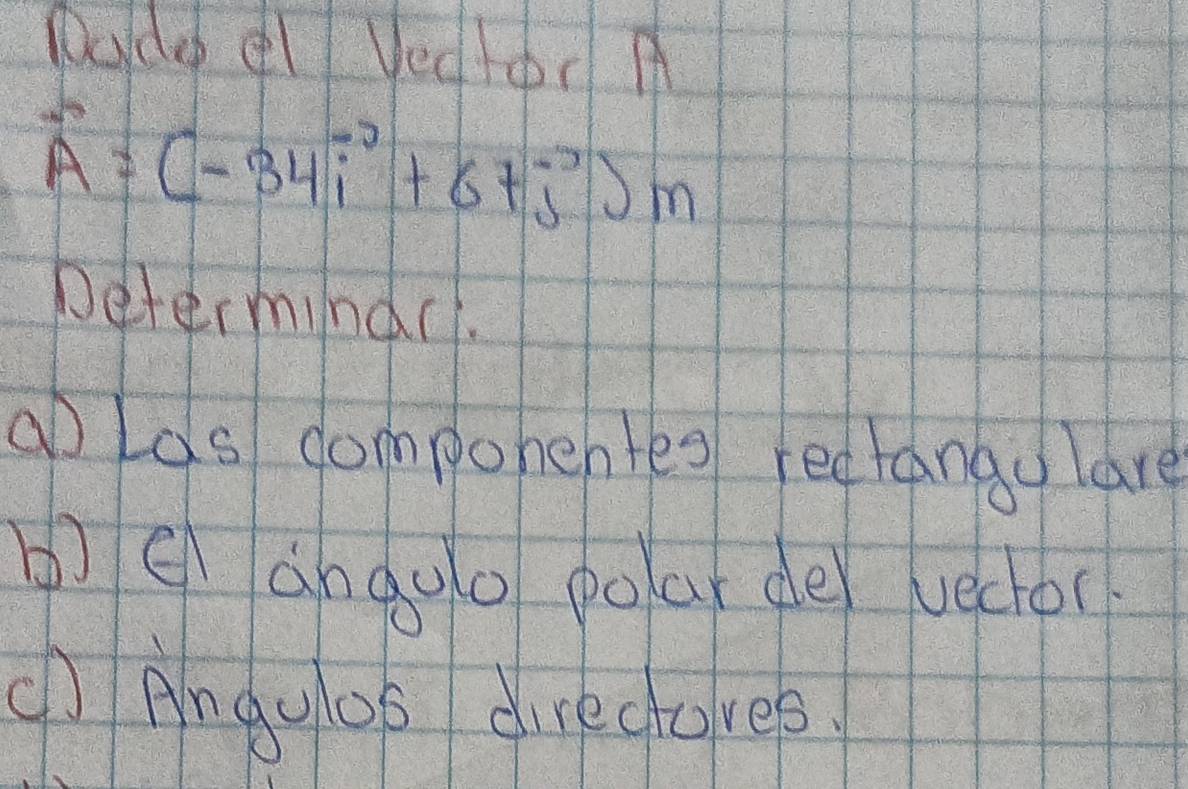 Dado el Vector A
A = (-34i + 67j) m
Determinar:
a) Las componentes rectangulare
b) El ángulo polar del vector.
c) Ángulos directores.